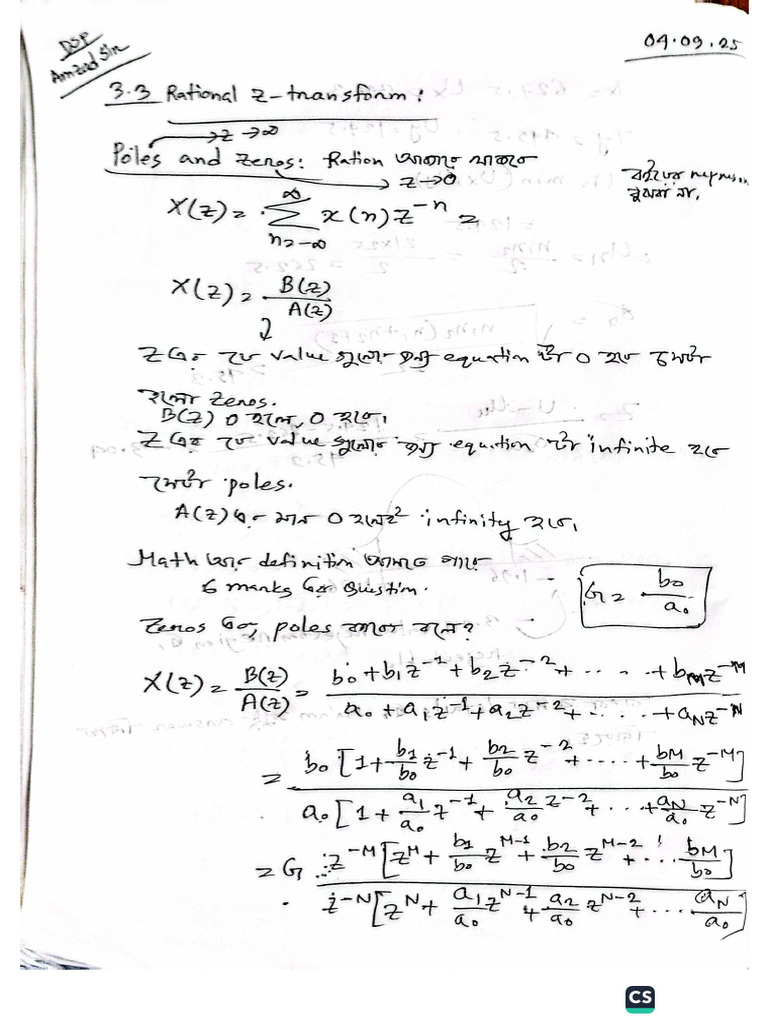 DSP
Amzad Sir
04.09.25
3.3 Rational z-transform:
z→∞
Poles and Zeros: Ration আকারে থাকবে
z→0
X(z) = ∞∑n=-∞ x(n) z^-n =
X(z) = B(z)/A(z)
Z এর যে value গুলোর জন্য equation টা 0 হবে সেটা
হলো Zeros.
B(z) 0 হলে, 0 হবে।
Z এর যে value গুলোর জন্য equation টা infinite হবে
সেটা poles.
A(z) এর মান 0 হলেই infinity হবে।
Math আর definition আসতে পারে
6 marks এর Question.
G = b0/a0
Zeros এবং poles কাকে বলে?
X(z) = B(z)/A(z) = b0+b1z^-1+b2z^-2+.....+bMz^-M / a0+a1z^-1+a2z^-2+.....+aNz^-N
= b0[1+b1/b0 z^-1+b2/b0 z^-2+.....+bM/b0 z^-M] / a0[1+a1/a0 z^-1+a2/a0 z^-2+...+aN/a0 z^-N]
= G z^-M[z^M+b1/b0 z^M-1+b2/b0 z^M-2+...bM/b0] / z^-N[z^N+a1/a0 z^N-1+a2/a0 z^N-2+...aN/a0]
CS